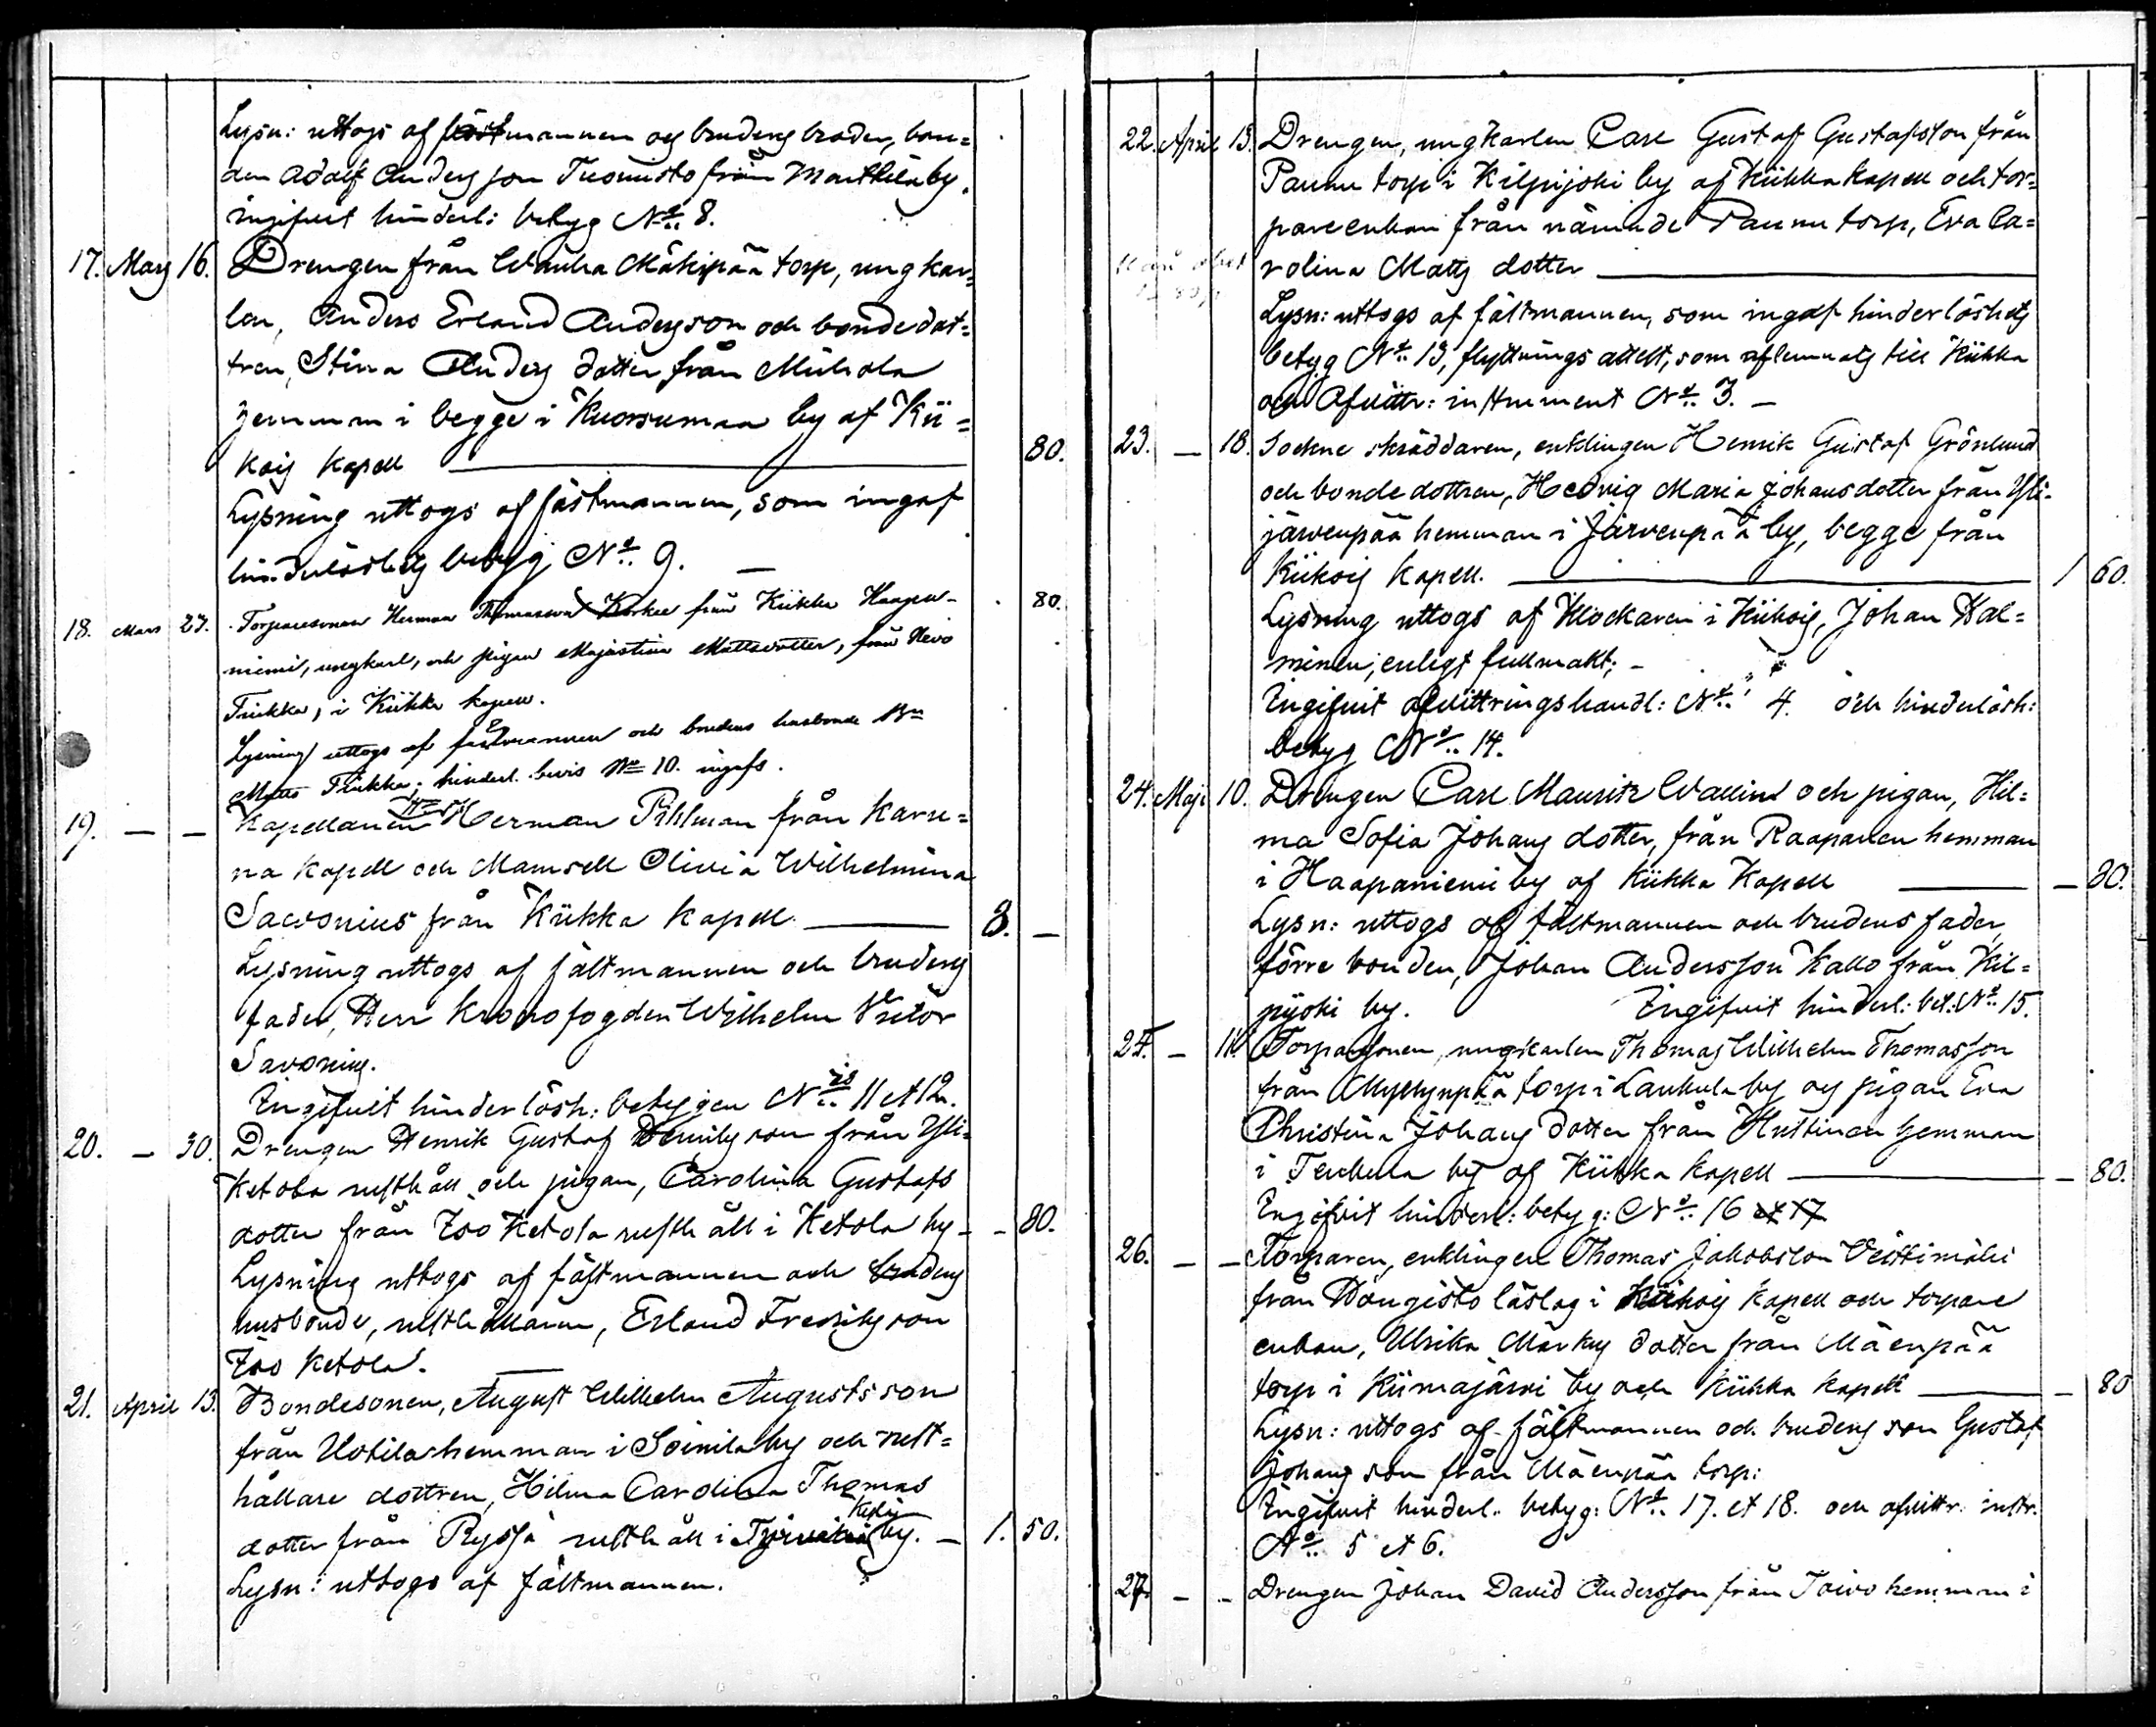 Lysn: uttogs af fästmannen og brudens broder, bon=
den Adolf Andersson Tuomisto från Marttila by.
ingifvit hinderl: betyg No 8.
17. Mars 16. Drengen från Wanha Mäkipää torp, ungkar=
len, Anders Erland Andersson och bondedot=
tren, Stina Anders dotter från Miihola
hemman i begge i Kuorsumaa by af Kii=
kois Kapell 80.
Lysning uttogs af fästmannen, som ingaf
hinderlöshets betyg No 9.
18. Mars 27. Torparesonen Herman Thomasson Korkee från Kiikka Haapa- 80.
niemi, ungkarl, och pigan Majastina Mattsdotter, från
Tiukka, i Kiikka kapell.
Lysning uttogs af fästmannen och brudens husbonde Bn
Matts Tiukka; hinderl. bevis No 10. ingafs.
19. — — Kapellanen Herr Herman Pihlman från Karu=
na Kapell och Mamsell Olivia Wilhelmina
Savonius från Kiikka Kapell 3. —
Lysning uttogs af fästmannen och brudens
fader, Herr Kronofogden Wilhelm Victor
Savonius.
Ingifvit hinderlösh: betygen Nris 11 et 12.
20. — 30. Drengen Henrik Gustaf Henriksson från Yli-
Ketola rusthåll och pigan, Carolina Gustafs
dotter från Iso Ketola rusthåll i Ketola by — — 80.
Lysning uttogs af fästmannen och brudens
husbonde, rusthållaren, Erland Fredriksson
Iso Ketola.
21. April 13. Bondesonen, August Wilhelm Augustsson
från Uotila hemman i Soinila by och rust=
hållare dottren, Hilma Carolina Thomas
dotter från Ryssä rusthåll i by. — 1. 50.
Lysn: uttogs af fästmannen.
22. April 13. Drengen, ungkarlen Carl Gustaf Gustafsson från
Paunu torp i Kilpijoki by af Kiikka kapell och tor=
pareenkan från nämnde Paunu torp, Eva Ca=
rolina Matts dotter
Lysn: uttogs af fästmannen, som ingaf hinderlöshets
betyg No 13, flyttnings attest, som aflemnats till Kiikka
och Afvittr: instrument No 3. —
23. — 18. Sockne skräddaren, enklingen Henrik Gustaf Grönlund
och bonde dottren, Hedvig Maria Johansdotter från Yli-
järvenpää hemman i Järvenpää by, begge från
Kiikois Kapell. 1 60.
Lysning uttogs af Klockaren i Kiikois, Johan Hal=
minen, enligt fullmakt; —
Ingifvit afvittringshandl: No 4. och hinderlösh:
betyg No 14.
24. Maji 10. Drengen Carl Maurits Wallin och pigan, Hil=
ma Sofia Johans dotter, från Raapanen hemman
i Haapaniemi by af Kiikka Kapell — 80.
Lysn: uttogs af fästmannen och brudens fader,
förre bonden, Johan Andersson Kallo från Kil=
pijoki by. Ingifvit hinderl: bet: No 15.
25. — 11. Torparsonen, ungkarlen Thomas Wilhelm Thomasson
från Myllynpää torp i Laukula by og pigan Eva
Christina Johans dotter från Huttinen hemman
i by af Kiikka Kapell — 80.
Ingifvit hinderl: betyg: No 16 et 17
26. — — Torparen, enklingen Thomas Jakobsson Veistimäki
från låslag i Kiikois Kapell och torpare
enkan, Ulrika dotter från Mäenpää
torp i Kiimajärvi by och Kiikka Kapell — 80
Lysn: uttogs af fästmannen och brudens son Gustaf
Johansson från Mäenpää torp:
Ingifvit hinderl: betyg: No 17. et 18. och afvittr. instr.
No 5 et 6.
27. — — Drengen Johan David Andersson från Toivo hemman i